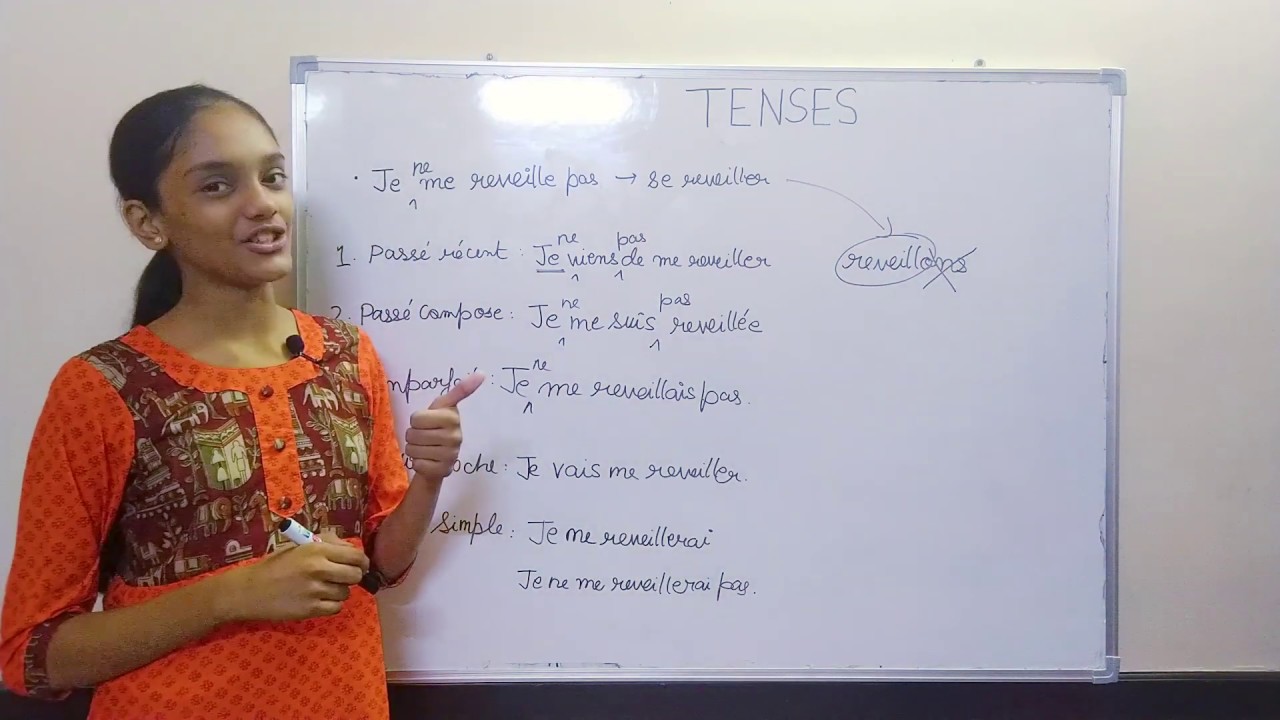 TENSES
· Je ne me reveille pas → se reveiller
reveillons
1. Passé récent : Je ne viens pas de me reveiller
2. Passé Compose : Je ne me suis pas reveillée
mparfait : Je ne me reveillais pas.
oche : Je vais me reveiller.
simple : Je me reveillerai
Je ne me reveillerai pas.